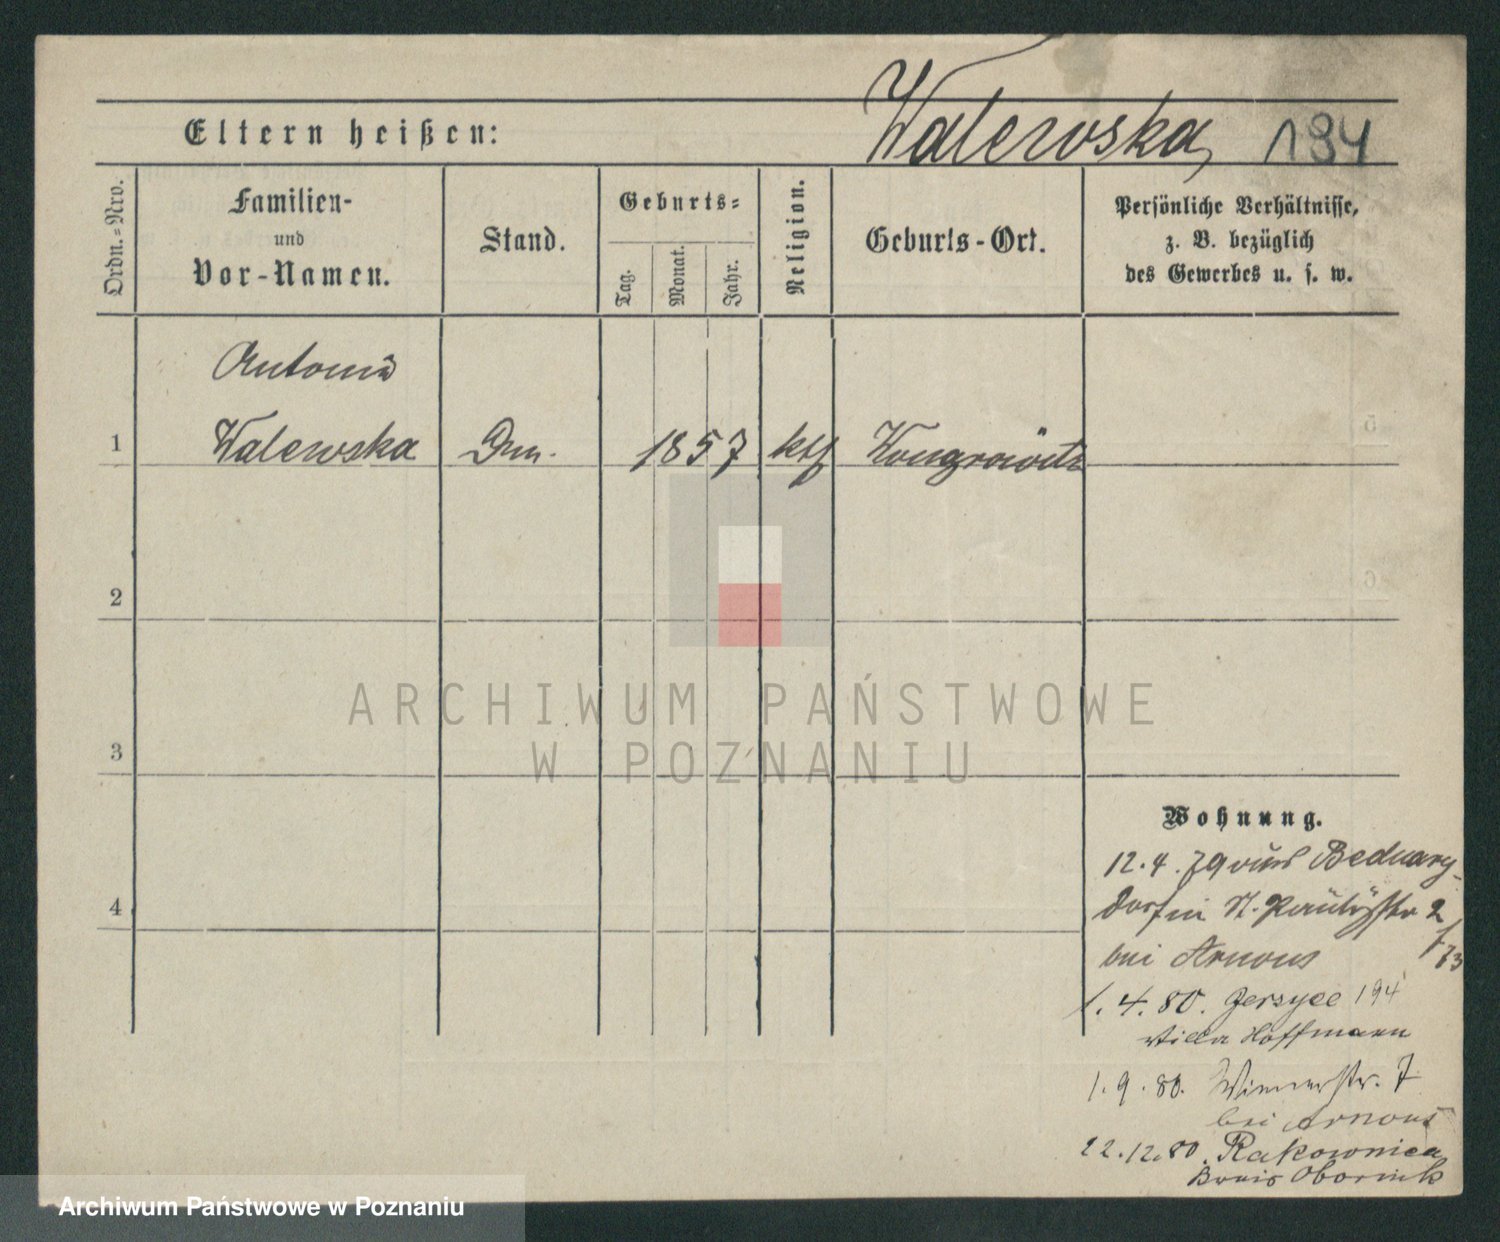 Walewska, 194
Eltern heißen:
Ordn.=Nro.
Familien-
und
Vor-Namen.
Stand.
Geburts=
Tag.
Monat.
Jahr.
Religion.
Geburts-Ort.
Persönliche Verhältnisse,
z. B. bezüglich
des Gewerbes u. s. w.
Antonie
1 Walewska 1857 ktl Wongrowitz
2
3
4
5
6
ARCHIWUM PAŃSTWOWE
W POZNANIU
Wohnung.
12.4.79 aus Bednary
Dorf in St. 2
bei Arnous
1.4.80. Jerzyce 194
Villa Hoffmann
1.9.80. Wienerstr. 7
bei Arnous
22.12.80. Rakownica
Kreis Obornik
Archiwum Państwowe w Poznaniu